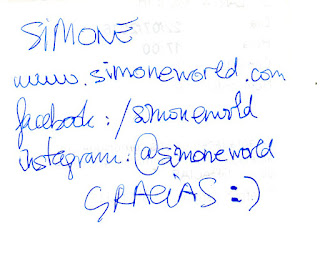 SIMONE
www.simoneworld.com
facebook: /simoneworld
instagram: @simoneworld
GRACIAS :)